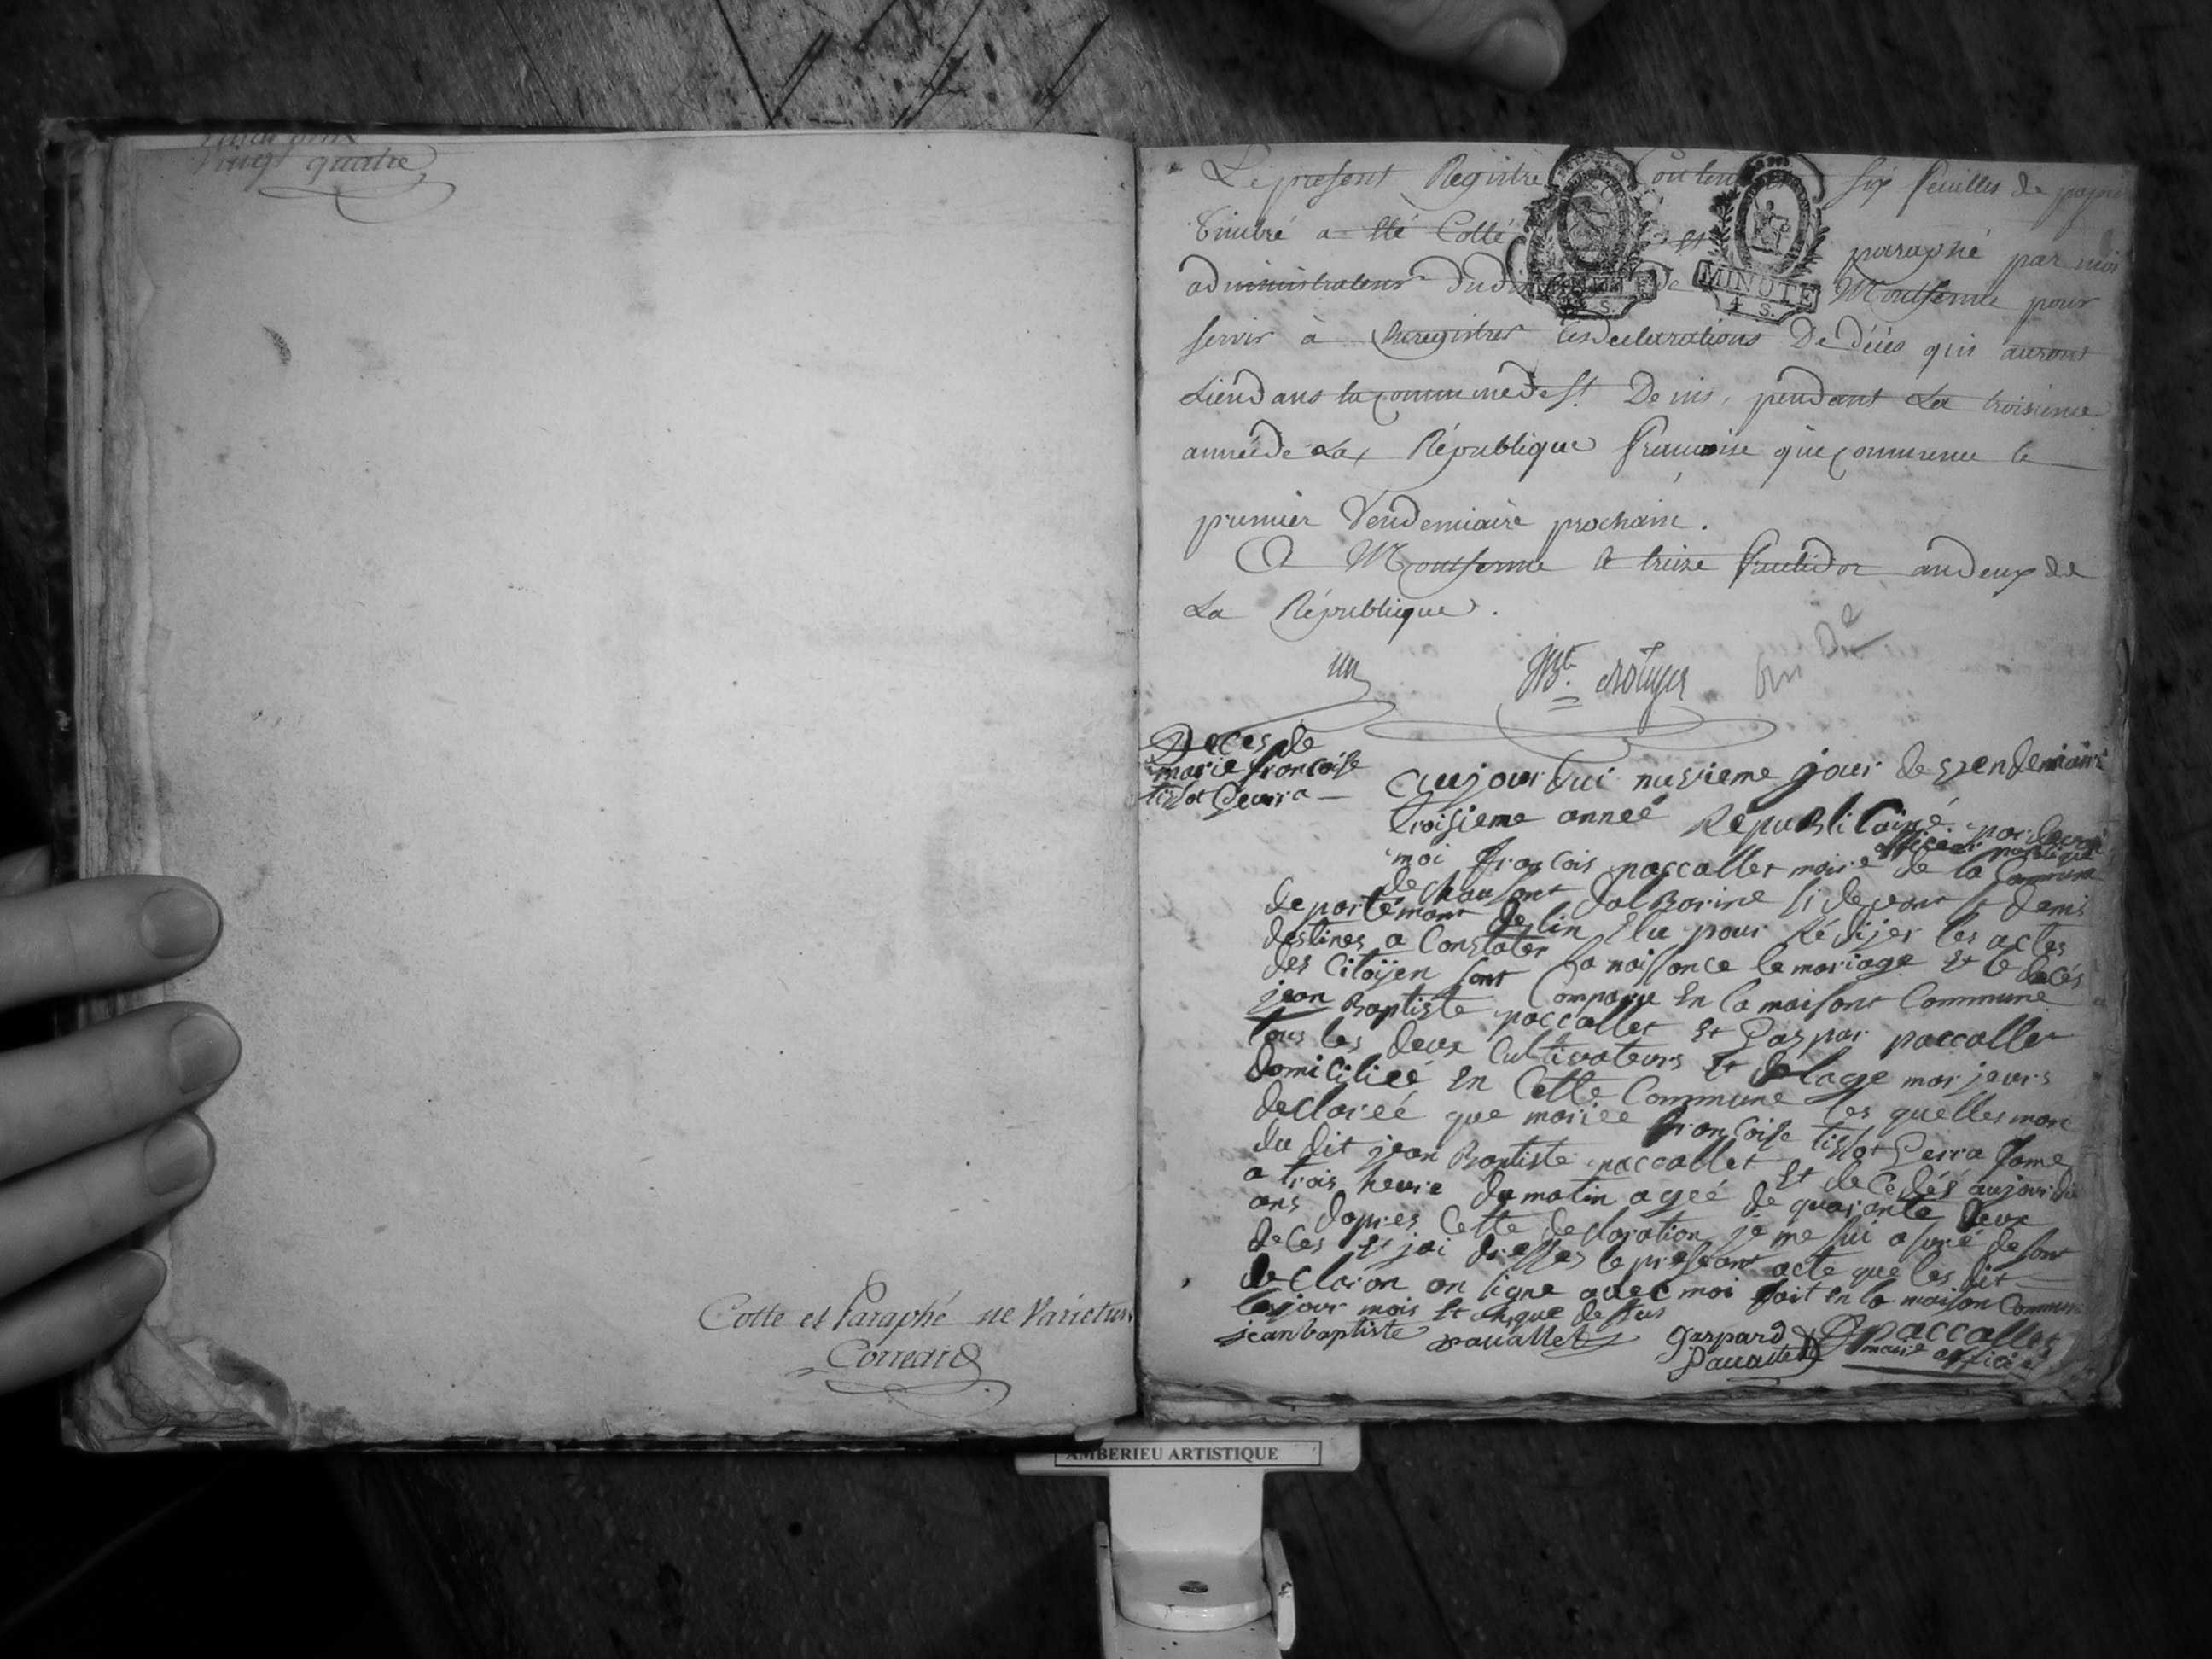 Vingt quatre
Cotte et Paraphé ne Varietur
Correard
Le present Registre Contenant six feuilles de papier
timbré a été Cotté et paraphé par moi
administrateur du de Montferme pour
servir à Enregistrer les declarations De décès qui auront
Lieu dans la commune de St. Denis, pendant La troisieme
année de La République francoise qui commence le
premier Vendemiaire prochain.
A Montferme le treize fructidor an deux de
La République.
un
MINUTE
4 S.
Deces de
marie francoise
tissot
aujourdui jour de vendemiaire
troisieme anneé Republicaine par devant
moi francois paccallet maire officier publique
de la Commune
de chausont dalbarine si devant st denis
departement de lin Elu pour Rédijer les actes
destines a Constater la naissance le mariage et le decés
des Citoÿen sont Comparu En la maisont Commune
jean Baptiste paccallet et Gaspar paccallet
tous les deux Cultivateurs et de lage marjeurs
domicilieé En Cette Commune les quelles mont
declareé que mariee francoise tissot Perra fame
du dit jean Baptiste paccallet et de Cedéé aujourdui
a trois heure du matin ageé de quarante deux
ans dapres Cette declaration je me sui asuré de sont
deces et jai dresses le presant acte que les dit
declaron on signe avec moi fait En la maison Commune
les jour mois et an que dessus
jean baptiste paccallet
gaspard
Paccallet
paccallet
maire officie
AMBERIEU ARTISTIQUE